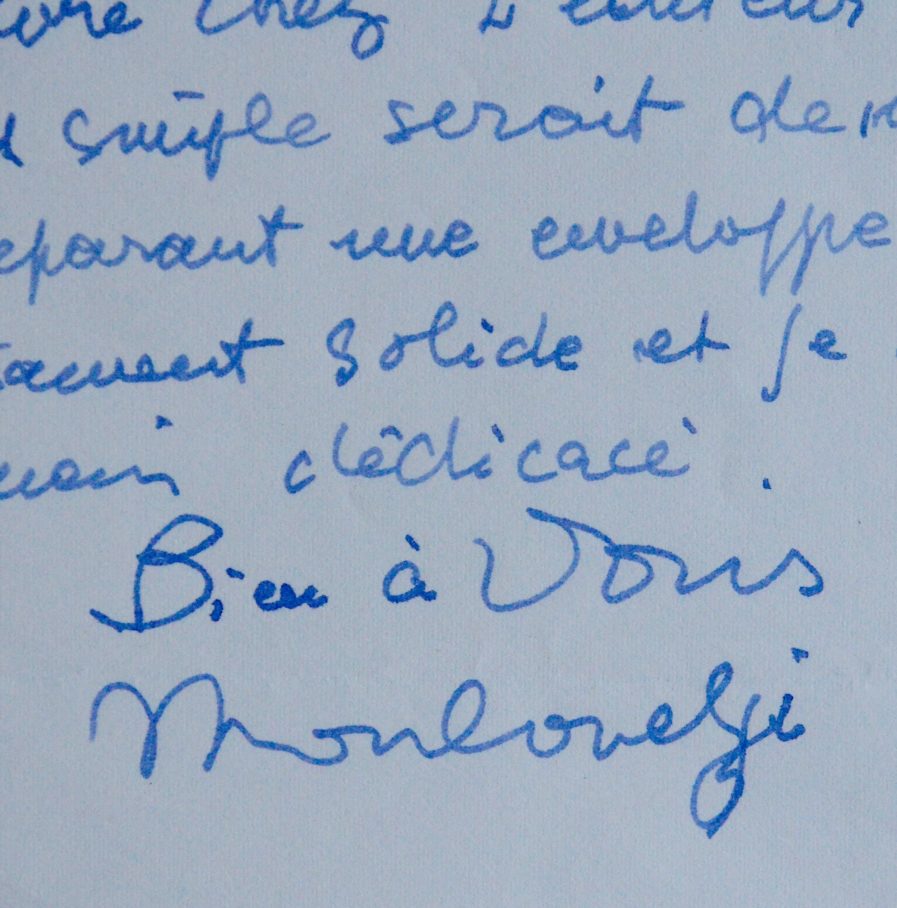 chez l'éditeur
simple serait de
éparant une enveloppe
solide et je
main dédicacé.
Bien à Vous
Mouloudji